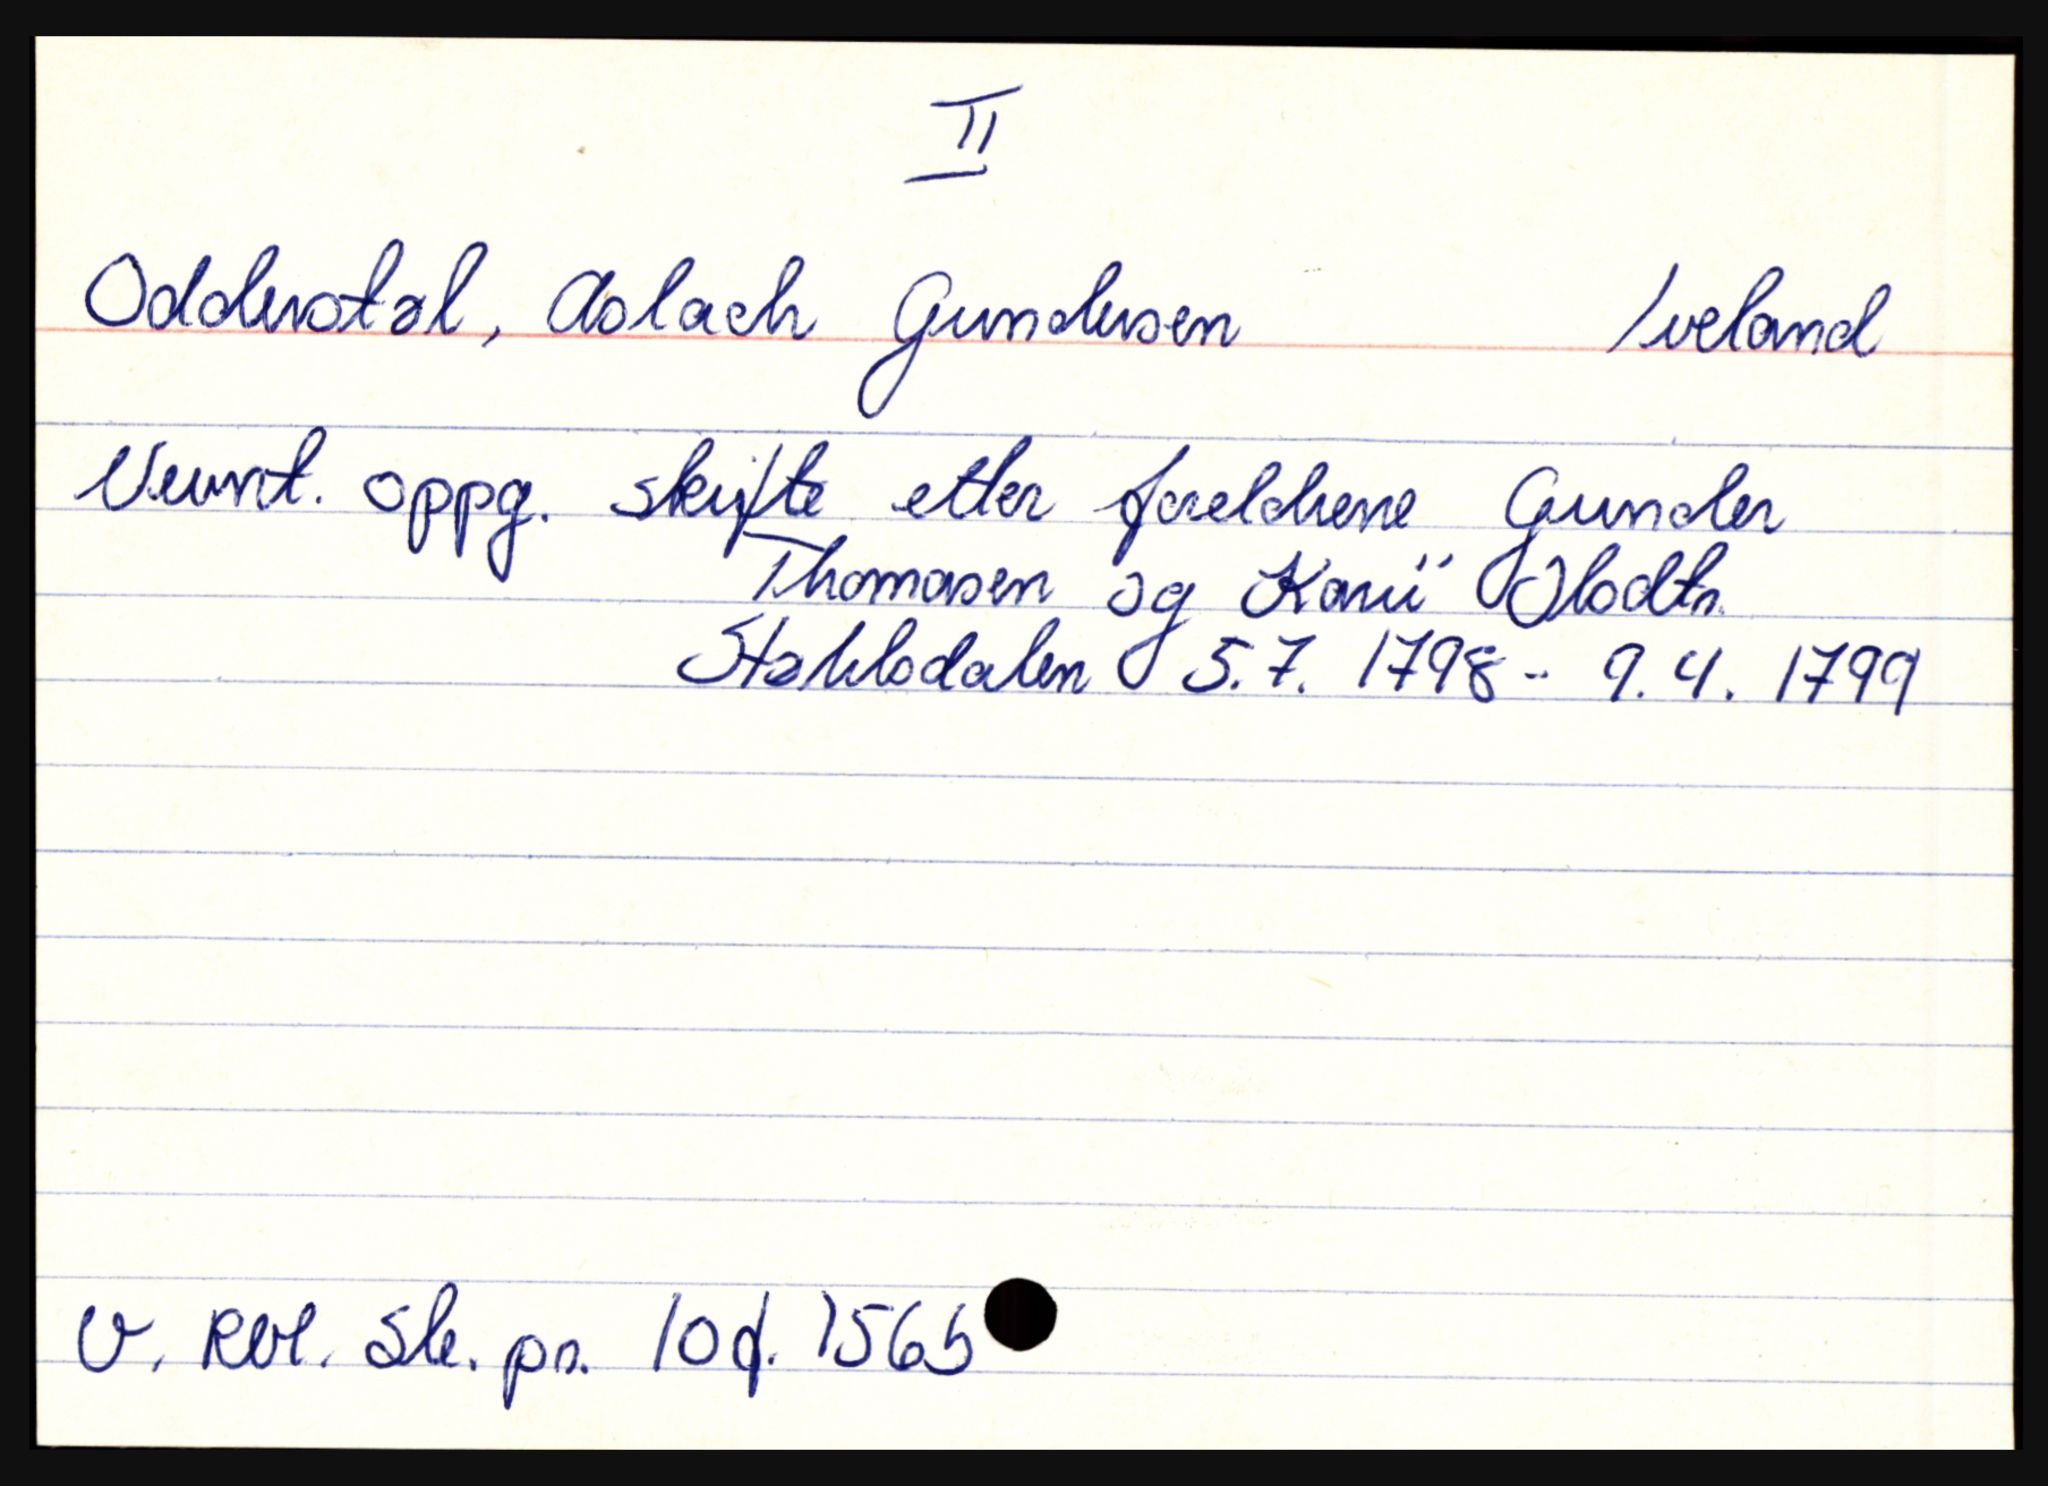 II
Odderstøl, Aslach Gundersen Iveland
Uvurt. oppg. skifte etter foreldrene Gunder
Thomasen og Karii Olsdtr.
Støhlsdalen 5.7. 1798 - 9.4. 1799
V. Rbl. Sk. pr. 10 f. 156b